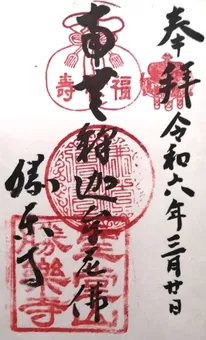 奉拝 令和六年三月廿日
南無釋迦牟尼佛
勝楽寺
福寿
勝樂寺